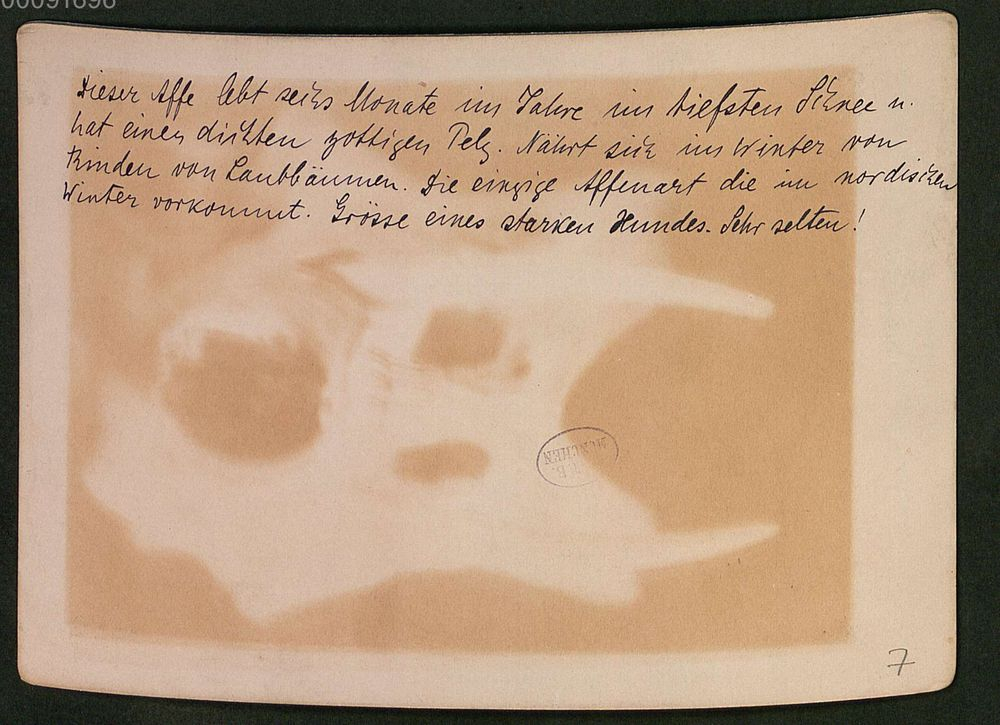 00091696
Dieser Affe lebt sechs Monate im Jahre im tiefsten Schnee u.
hat einen dichten zottigen Pelz. Nährt sich im Winter von
Rinden von Laubbäumen. Die einzige Affenart die im nordischen
Winter vorkommt. Grösse eines starken Hundes. Sehr selten!
MÜNCHEN
7